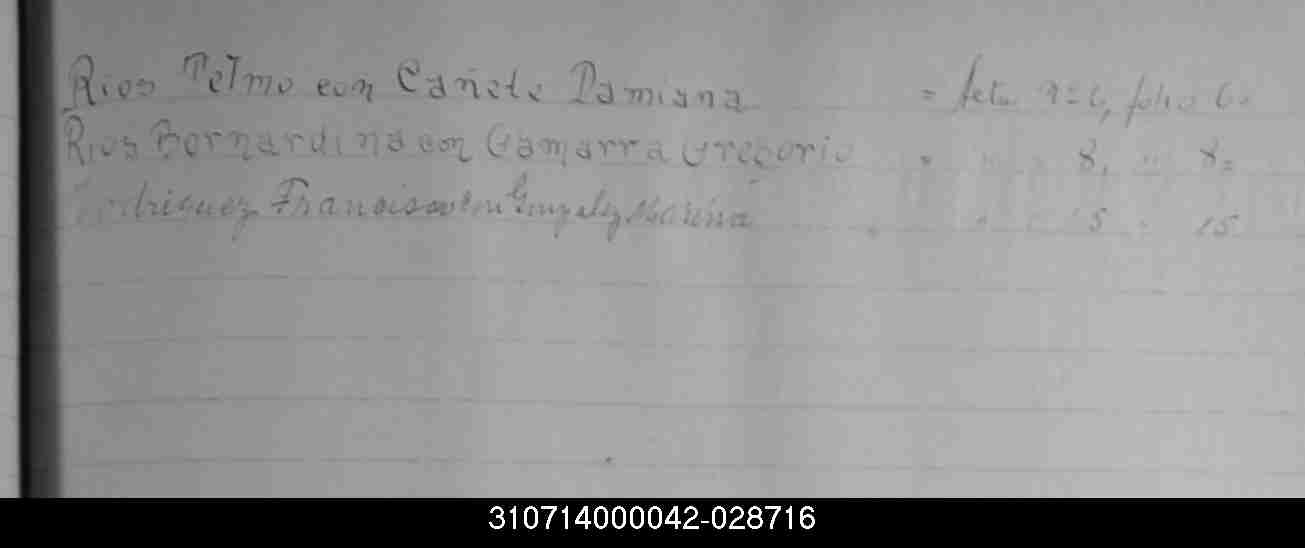 Rios Telmo con Cañete Damiana = Acta nº 6, folio 6=
Rios Bernardina con Gamarra Gregorio " " " 8, " 8=
Rodriguez Francisco con Gonzalez Marina " " " 15 " 15
310714000042-028716